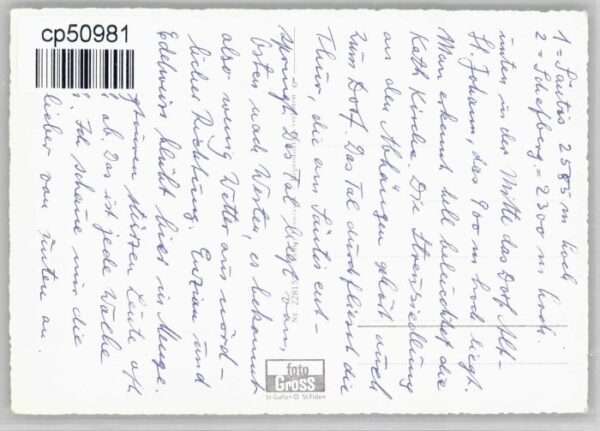 cp50981
1 = Säntis 2505 m hoch
2 = Schafberg = 2300 m hoch.
unten in der Mitte das Dorf Alt-
St. Johann, das 900 m hoch liegt.
Man erkennt hell beleuchtet die
Kath Kirche. Die Streusiedlung
an den Abhängen gehört auch
zum Dorf. Das Tal durchfließt die
Thur, die am Säntis ent-
springt. Das Tal liegt von
Osten nach Westen, es bekommt
also wenig Wetter aus nörd-
licher Richtung. Enzian und
Edelweiss blüht hier in Menge.
stürzen Leute oft
ab. Das ist jede Woche
Ich schaue mir die
lieber von unten an.
foto
GROSS
St Gallen St Fiden